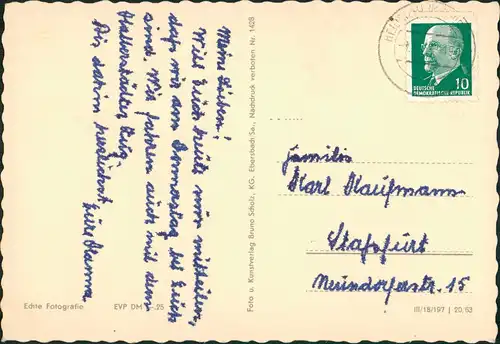 Meine Lieben!
Will Euch heute nur mitteilen,
daß wir am Donnerstag bei Euch
sind. Wir fahren auch mit dem
Halberstädter Zug.
Bis dahin herzlichst
Eure Mama
Echte Fotografie
EVP DM -,25
Foto u. Kunstverlag Bruno Scholz, KG., Ebersbach/Sa., Nachdruck verboten Nr. 1428
10
DEUTSCHE
DEMOKRATISCHE REPUBLIK
Familie
Karl Kaufmann
Staßfurt
Neundorferstr. 15
III/18/197 | 20/63